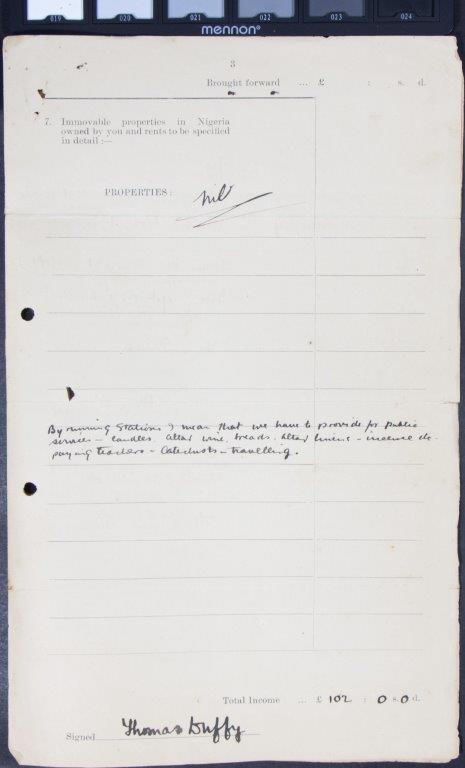 019 020 021 022 023 024
mennon®
3
Brought forward ... £ : s. d.
7. Immovable properties in Nigeria
owned by you and rents to be specified
in detail :—
PROPERTIES: nil
By running Stations I mean that we have to provide for public
services – Candles. Altar wine, breads. Altar linens – incense etc.
paying teachers – Catechists – travelling.
Total Income ... £ 102 : 0 s. 0 d.
Signed Thomas Duffy